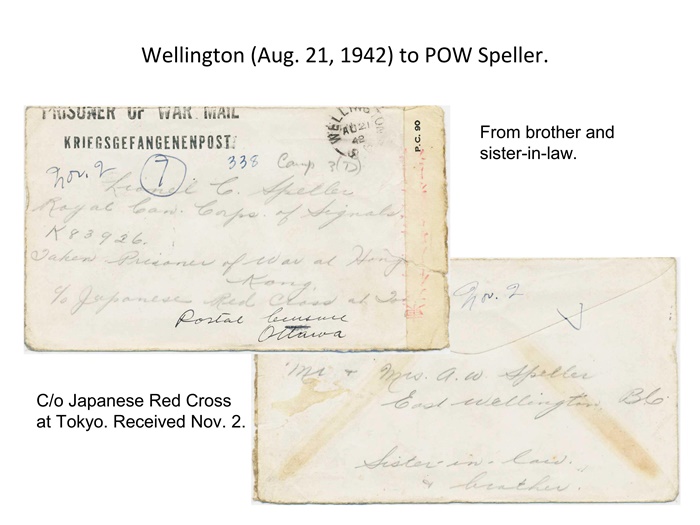 Wellington (Aug. 21, 1942) to POW Speller.
PRISONER OF WAR MAIL
KRIEGSGEFANGENENPOST
WELLINGTON
AU 21
42
P.C. 90
From brother and
sister-in-law.
Nov. 2
7
338 Camp 3(D)
Lionel C. Speller
Royal Can. Corps. of Signals.
K83926.
Taken Prisoner of War at Hong
Kong.
c/o Japanese Red Cross at
Postal Censure
Ottawa
Nov. 2
Mr + Mrs. A.W. Speller
East Wellington, B.C.
Sister-in-law.
& brother.
C/o Japanese Red Cross
at Tokyo. Received Nov. 2.